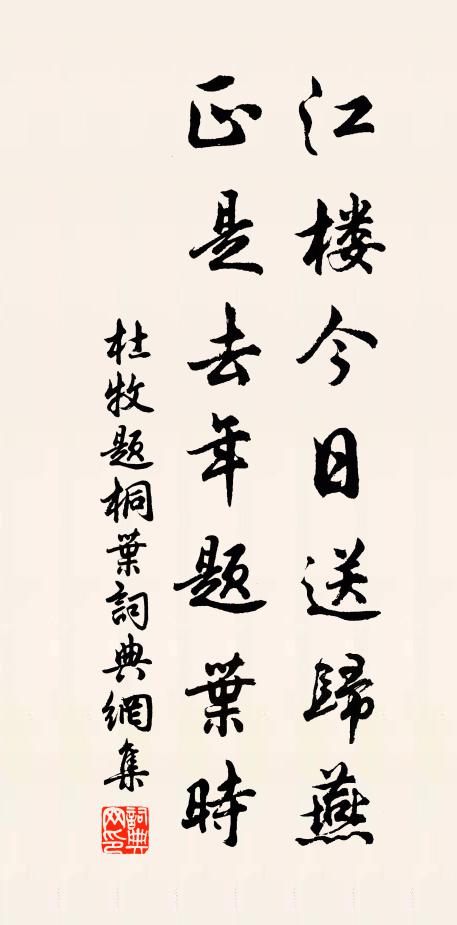 江楼今日送歸燕
正是去年題葉時
杜牧題桐葉詞典網集
詞典
网印